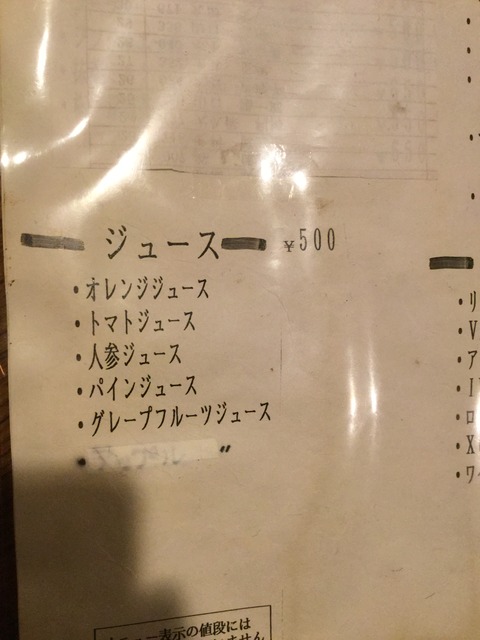 ジュース ¥500
・オレンジジュース
・トマトジュース
・人参ジュース
・パインジュース
・グレープフルーツジュース
・ 〃
・リ
・V
・ア
・ロ
・X
・ワ
メニュー表示の値段には